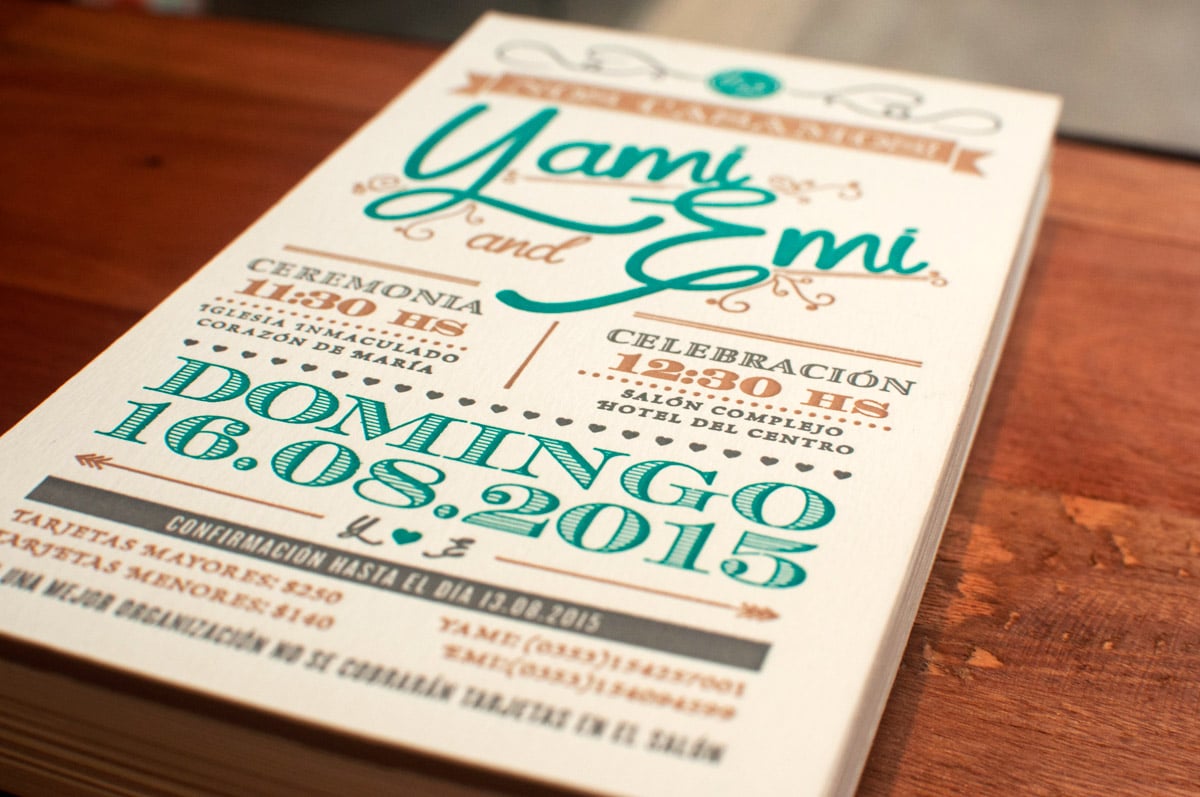 NOS CASAMOS!
Yami
and
Emi
CEREMONIA
11:30 HS
IGLESIA INMACULADO
CORAZÓN DE MARÍA
CELEBRACIÓN
12:30 HS
SALÓN COMPLEJO
HOTEL DEL CENTRO
DOMINGO
16.08.2015
Y E
CONFIRMACIÓN HASTA EL DÍA 13.08.2015
TARJETAS MAYORES: $250
TARJETAS MENORES: $140
YAMI: (0353)154257001
EMI: (0353)154094299
UNA MEJOR ORGANIZACIÓN NO SE COBRARÁN TARJETAS EN EL SALÓN